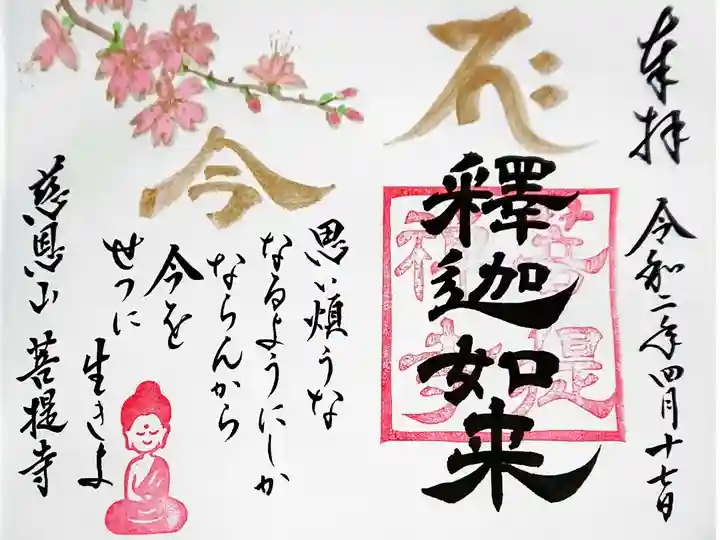 奉拝
令和二年四月十七日
釋迦如来
今
思い煩うな
なるようにしか
ならんから
今を
せつに
生きよ
慈恩山 菩提寺